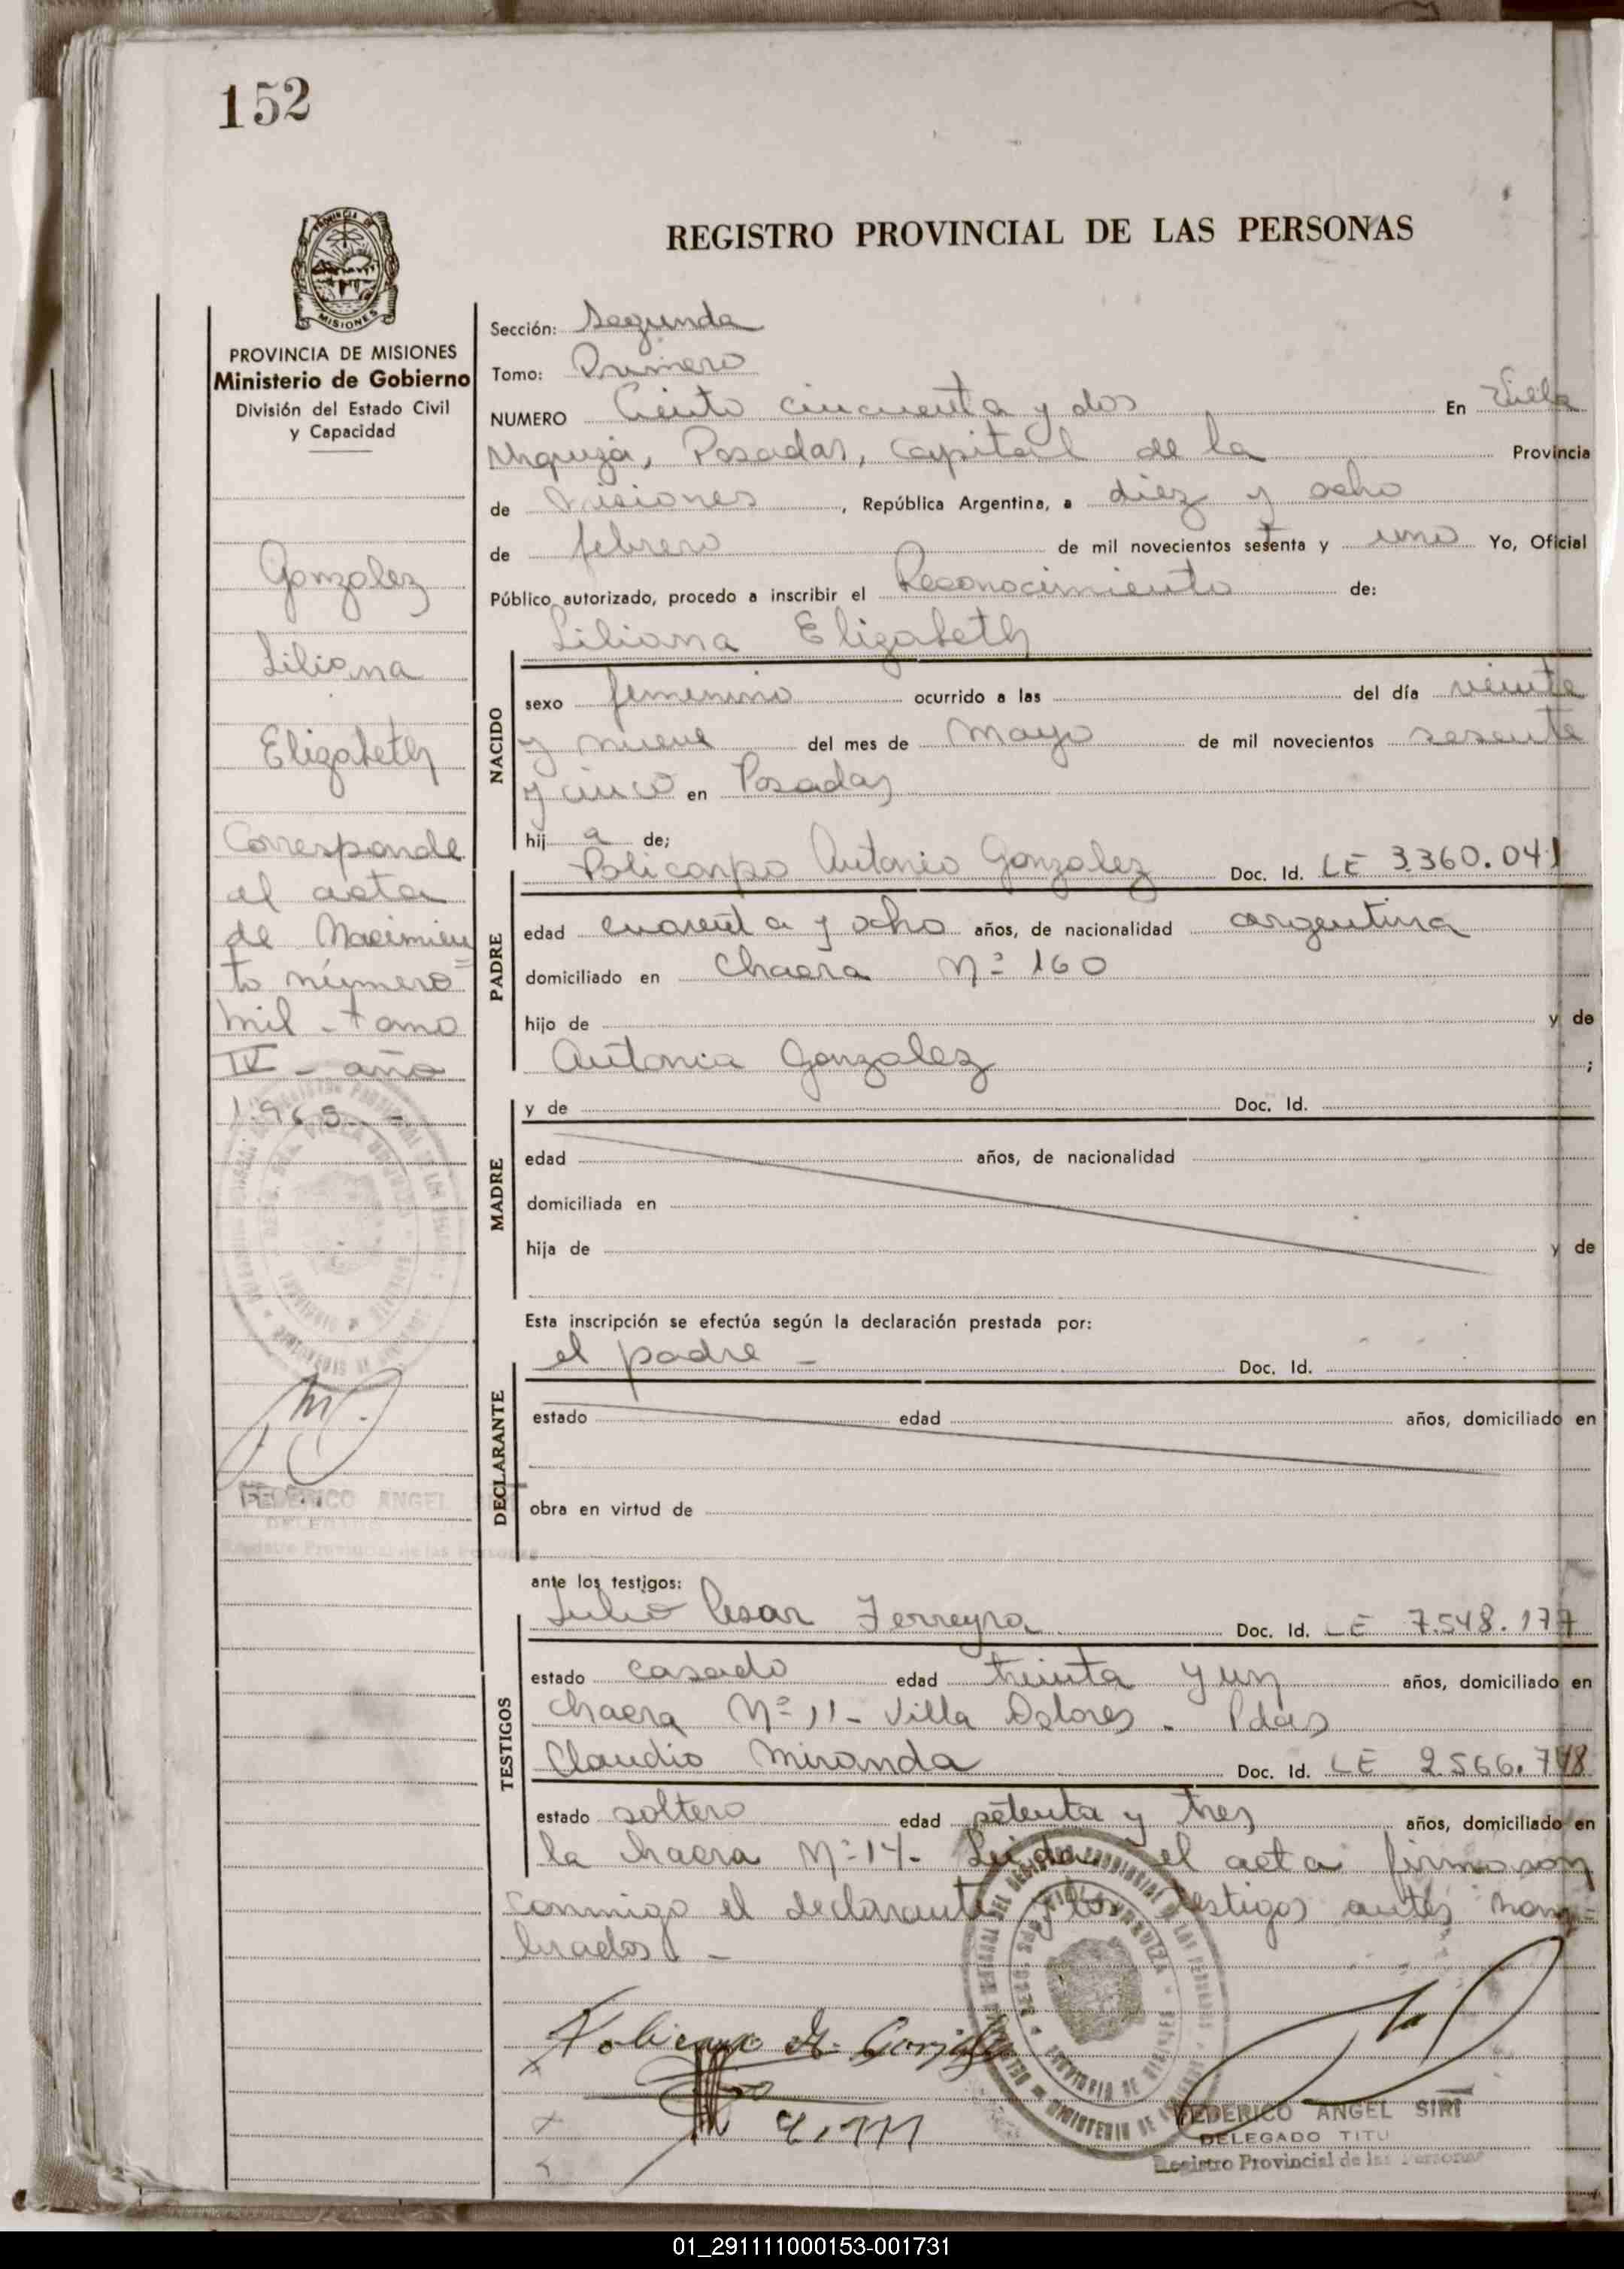 152
PROVINCIA DE MISIONES
PROVINCIA DE MISIONES
Ministerio de Gobierno
División del Estado Civil
y Capacidad
Gonzalez
Liliana
Elizabeth
Corresponde
al acta
de Nacimien
to número
mil - tomo
IV - año
1.965 -
FEDERICO ANGEL
DELEGADO
Registro Provincial de las Personas
REGISTRO PROVINCIAL DE LAS PERSONAS
Sección: Segunda
Tomo: Primero
NUMERO Ciento cincuenta y dos En Villa
Urquiza, Posadas, capital de la Provincia
de Misiones, República Argentina, a diez y ocho
de febrero de mil novecientos setenta y uno Yo, Oficial
Público autorizado, procedo a inscribir el Reconocimiento de:
Liliana Elizabeth
NACIDO
sexo femenino ocurrido a las del día veinte
y nueve del mes de mayo de mil novecientos sesenta
y cinco en Posadas
hij a de;
Policarpo Antonio Gonzalez Doc. Id. LE 3.360.041
PADRE
edad cuarenta y ocho años, de nacionalidad argentina
domiciliado en Chacra Nº 160
hijo de y de
Antonia Gonzalez ;
y de Doc. Id.
MADRE
edad años, de nacionalidad
domiciliada en
hija de y de
Esta inscripción se efectúa según la declaración prestada por:
el padre - Doc. Id.
DECLARANTE
estado edad años, domiciliado en
obra en virtud de
ante los testigos:
Julio Cesar Ferreyra Doc. Id. LE 7.548.177
TESTIGOS
estado casado edad treinta y un años, domiciliado en
chacra Nº 11 - Villa Dolores. Pdas
Claudio Miranda Doc. Id. LE 2.566.748
estado soltero edad setenta y tres años, domiciliado en
la chacra Nº 14. Leida el acta firmaron
conmigo el declarante y los testigos antes nom=
brados -
C. M
FEDERICO ANGEL SIRI
DELEGADO TITU
Registro Provincial de las Personas
01_291111000153-001731